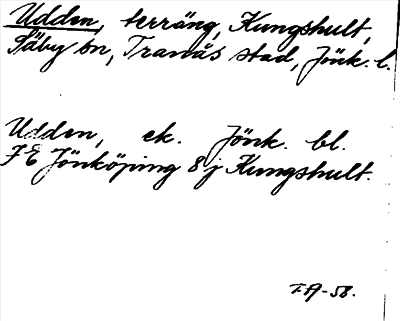 Udden, terräng, Kungshult,
Säby sn, Tranås stad, Jönk. l.
Udden, ek. Jönk. bl.
7E Jönköping 8j Kungshult.
FA-58.